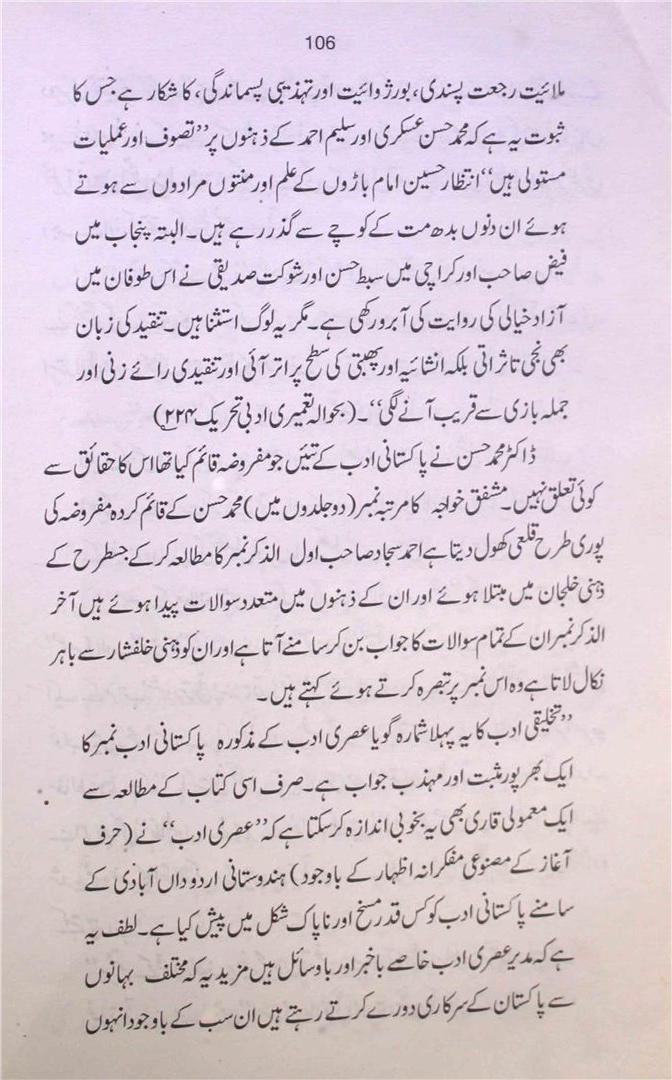 106
ملائیت رجعت پسندی، بورژوائیت اور تہذیبی پسماندگی، کا شکار ہے جس کا
ثبوت یہ ہے کہ محمد حسن عسکری اور سلیم احمد کے ذہنوں پر ”تصوف اور عملیات
مستولی ہیں“ انتظار حسین امام باڑوں کے علم اور منتوں مرادوں سے ہوتے
ہوئے ان دنوں بدھ مت کے کوچے سے گذر رہے ہیں۔ البتہ پنجاب میں
فیض صاحب اور کراچی میں سبط حسن اور شوکت صدیقی نے اس طوفان میں
آزاد خیالی کی روایت کی آبرو رکھی ہے۔ مگر یہ لوگ استثنا ہیں۔ تنقید کی زبان
بھی نجی تاثراتی بلکہ انشائیہ اور پھبتی کی سطح پر اتر آئی اور تنقیدی رائے زنی اور
جملہ بازی سے قریب آنے لگی“۔ (بحوالہ تعمیری ادبی تحریک ۲۲۴)
ڈاکٹر محمد حسن نے پاکستانی ادب کے تئیں جو مفروضہ قائم کیا تھا اس کا حقائق سے
کوئی تعلق نہیں۔ مشفق خواجہ کا مرتبہ نمبر (دو جلدوں میں) محمد حسن کے قائم کردہ مفروضہ کی
پوری طرح قلعی کھول دیتا ہے احمد سجاد صاحب اول الذکر نمبر کا مطالعہ کر کے جسطرح کے
ذہنی خلجان میں مبتلا ہوئے اور ان کے ذہنوں میں متعدد سوالات پیدا ہوئے ہیں آخر
الذکر نمبر ان کے تمام سوالات کا جواب بن کر سامنے آتا ہے اور ان کو ذہنی خلفشار سے باہر
نکال لاتا ہے وہ اس نمبر پر تبصرہ کرتے ہوئے کہتے ہیں۔
”تخلیقی ادب کا یہ پہلا شمارہ گویا عصری ادب کے مذکورہ پاکستانی ادب نمبر کا
ایک بھرپور مثبت اور مہذب جواب ہے۔ صرف اسی کتاب کے مطالعہ سے
ایک معمولی قاری بھی یہ بخوبی اندازہ کر سکتا ہے کہ ”عصری ادب“ نے (حرف
آغاز کے مصنوعی مفکرانہ اظہار کے باوجود) ہندوستانی اردو داں آبادی کے
سامنے پاکستانی ادب کو کس قدر مسخ اور ناپاک شکل میں پیش کیا ہے۔ لطف یہ
ہے کہ مدیر عصری ادب خاصے باخبر اور باوسائل ہیں مزید یہ کہ مختلف بہانوں
سے پاکستان کے سرکاری دورے کرتے رہتے ہیں ان سب کے باوجود انہوں